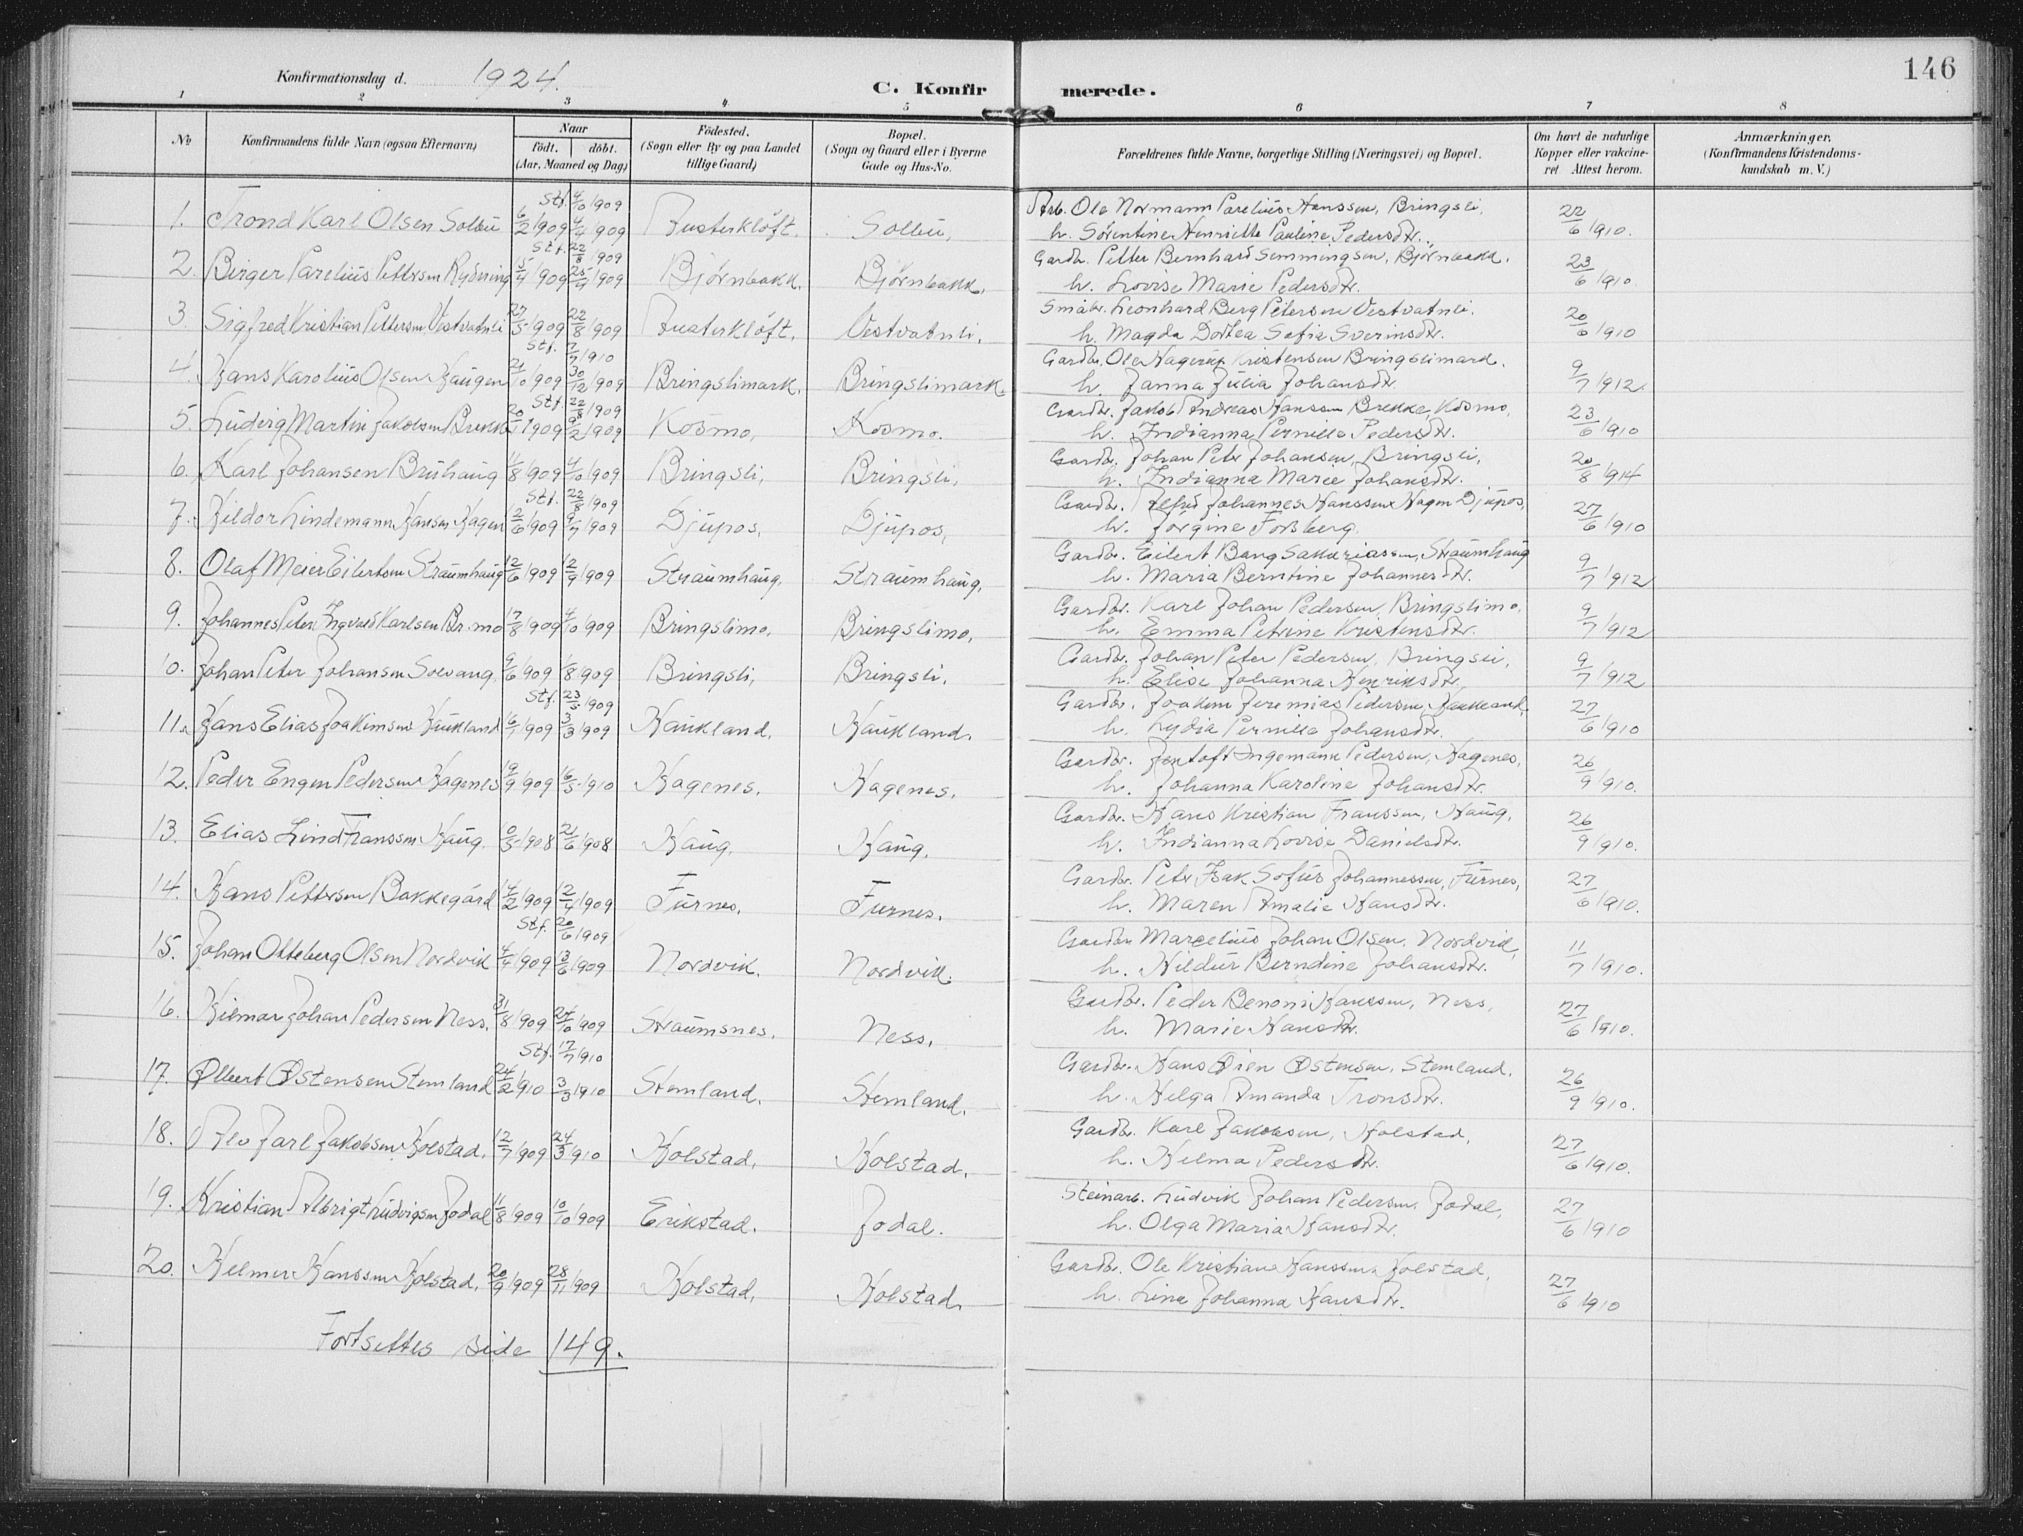 146
Konfirmationsdag d. 1924.
C. Konfir merede.
1 2 3 4 5 6 7 8
No Konfirmandens fulde Navn (ogsaa Efternavn) Naar født. døbt. (Aar, Maaned og Dag) Fødested. (Sogn eller By og paa Landet tillige Gaard) Bopæl. (Sogn og Gaard eller i Byerne Gade og Hus-No. Forældrenes fulde Navne, borgerlige Stilling (Næringsvei) og Bopæl. Om havt de naturlige Kopper eller vakcineret Attest herom. Anmærkninger. (Konfirmandens Kristendomskundskab m. V.)
Stf. 4/10 1909 Arb. Ole Normann Parelius Hanssen, Bringsli,
1. Trond Karl Olsen Solbu 6/2 1909 4/4 1909 Austerkløft. Solbu, h. Sørentine Henriette Pauline Pedersdtr. 22/6 1910.
Stf. 22/8 1909 Gardbr. Petter Bernhard Semmingsen, Bjørnbakk.
2. Birger Parelius Pettersen 1909 25/4 1909 Bjørnbakk. Bjørnbakk. h. Lovise Marie Pedersdtr. 23/6 1910.
Småbr. Leonhard Berg Petersen Vestvatnli.
3. Sigfred Kristian Pettersen Vestvatnli 27/5 1909 22/8 1909 Austerkløft. Vestvatnli. h. Magda Dortea Sofie Sverinsdtr. 20/6 1910
Stf. 7/7 1910 Gardbr. Ole Hagerup Kristensen Bringslimark.
4. Hans Karolius Olsen Haugen 21/10 1909 30/12 1909 Bringslimark. Bringslimark h. Janna Julia Johansdtr. 9/7 1912.
Stf. 22/8 1909 Gardbr. Jakob Andreas Hanssen Brekke, Kosmo,
5. Ludvig Martin Jakobsen Brekke 1909 9/2 1909 Kosmo, Kosmo. h. Indianna Pernille Pedersdtr. 23/6 1910
Gardbr. Johan Peter Johansen, Bringsli,
6. Karl Johansen Bruhaug 11/8 1909 4/10 1909 Bringsli, Bringsli, h. Indianna Marie Johansdtr. 20/8 1914
Stf. 22/8 1909 Gardbr. Alfred Johannes Hanssen Hagen Djupos,
7. Hildor Lindemann Hansen Hagen 2/6 1909 9/7 1909 Djupos, Djupos, h. Jørgine Forsberg. 27/6 1910
Gardbr. Eilert Bang Sakariassen, Straumhaug
8. Olaf Meier Eilertsen Straumhaug 12/6 1909 12/9 1909 Straumhaug, Straumhaug, h. Maria Berntine Johannesdtr. 9/7 1912
Gardbr. Karl Johan Pedersen, Bringslimo,
9. Johannes Peter Ingvard Karlsen Br.mo 17/8 1909 4/10 1909 Bringslimo, Bringslimo, h. Emma Petrine Kristensdtr. 9/7 1912
Gardbr. Johan Peter Pedersen, Bringsli,
10. Johan Peter Johansen Solvang 9/6 1909 1/8 1909 Bringsli, Bringsli. h. Elise Johanna Henriksdtr. 9/7 1912
Stf. 1909 Gardbr. Joakim Jeremias Pedersen, Haukland,
11. Hans Elias Joakimsen Haukland 16/1 1909 3/3 1909 Haukland, Haukland. h. Lydia Pernille Johansdtr. 27/6 1910
Gardbr. Jentoft Ingemann Pedersen, Hagenes,
12. Peder Engen Pedersen Hagenes 19/9 1909 16/5 1910 Hagenes. Hagenes. h. Johanna Karoline Johansdtr. 26/9 1910.
Gardbr. Hans Kristian Franssen, Haug,
13. Elias Lind Franssen Haug. 10/5 1908 21/6 1908 Haug. Haug. h. Indianna Lovise Danielsdtr. 26/9 1910.
Gardbr. Peter Isak Sofus Johannessen, Furnes,
14. Hans Pettersen Bakkegård 14/2 1909 12/4 1909 Furnes. Furnes. h. Maren Amalie Hansdtr. 27/6 1910.
Stf. 20/6 1909 Gardbr. Marcelius Johan Olsen. Nordvik,
15. Johan Otteberg Olsen Nordvik 4/4 1909 13/6 1909 Nordvik. Nordvik. h. Hildur Berndine Johansdtr. 11/7 1910.
Gardbr. Peder Benoni Hanssen, Ness,
16. Hilmar Johan Pedersen Ness. 31/8 1909 24/10 1909 Straumsnes. Ness. h. Marie Hansdtr. 27/6 1910.
Stf. 17/7 1910 Gardbr. Hans Øien Østensen, Stemland.
17. Ølbert Østensen Stemland 24/2 1910 3/3 1910 Stemland. Stemland. h. Helga Amanda Tronsdtr. 26/9 1910.
Gardbr. Karl Jakobsen, Kolstad,
18. Alv Jarl Jakobsen Kolstad. 12/7 1909 24/3 1910 Kolstad. Kolstad. h. Hilma Pedersdtr. 27/6 1910.
Steinarb. Ludvik Johan Pedersen. Jodal,
19. Kristian Albrigt Ludvigsen Jodal 11/8 1909 10/10 1909 Erikstad. Jodal. h. Olga Maria Hansdtr. 27/6 1910
Gardbr. Ole Kristian Hanssen Kolstad,
20. Helmer Hanssen Kolstad. 20/9 1909 28/11 1909 Kolstad, Kolstad. h. Lina Johanna Hansdtr. 27/6 1910
Fortsettes side 149.